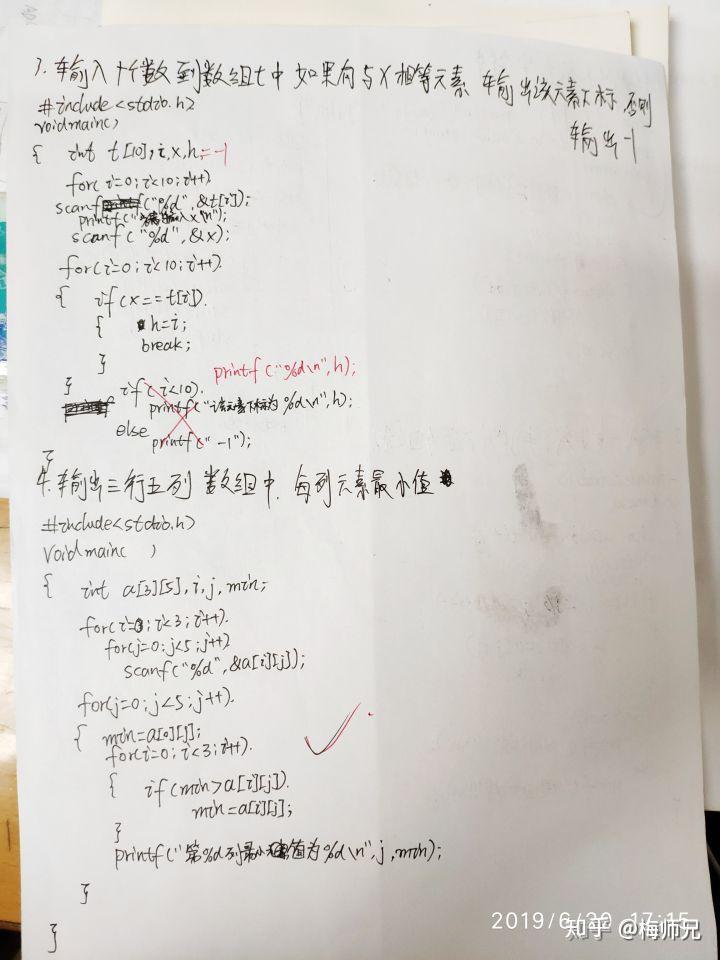 3. 输入十个数到数组t中 如果有与x相等元素 输出该元素下标 否则
输出-1
#include<stdio.h>
void main()
{ int t[10],i,x,h=-1
for(i=0;i<10;i++)
scanf("%d",&t[i]);
printf("请输入x\n");
scanf("%d",&x);
for(i=0;i<10;i++)
{ if(x==t[i])
{ h=i;
break;
}
printf("%d\n",h);
} if(i<10)
printf("该元素下标为%d\n",h);
else
printf("-1");
}
4. 输出三行五列 数组中, 每列元素最小值
#include<stdio.h>
void main( )
{ int a[3][5],i,j,min;
for(i=0;i<3;i++)
for(j=0;j<5;j++)
scanf("%d",&a[i][j]);
for(j=0;j<5;j++)
{ min=a[0][j];
for(i=0;i<3;i++)
{ if(min>a[i][j])
min=a[i][j];
}
printf("第%d列最小值为%d\n",j,min);
}
}
2019/6/20 17:15
知乎 @梅师兄